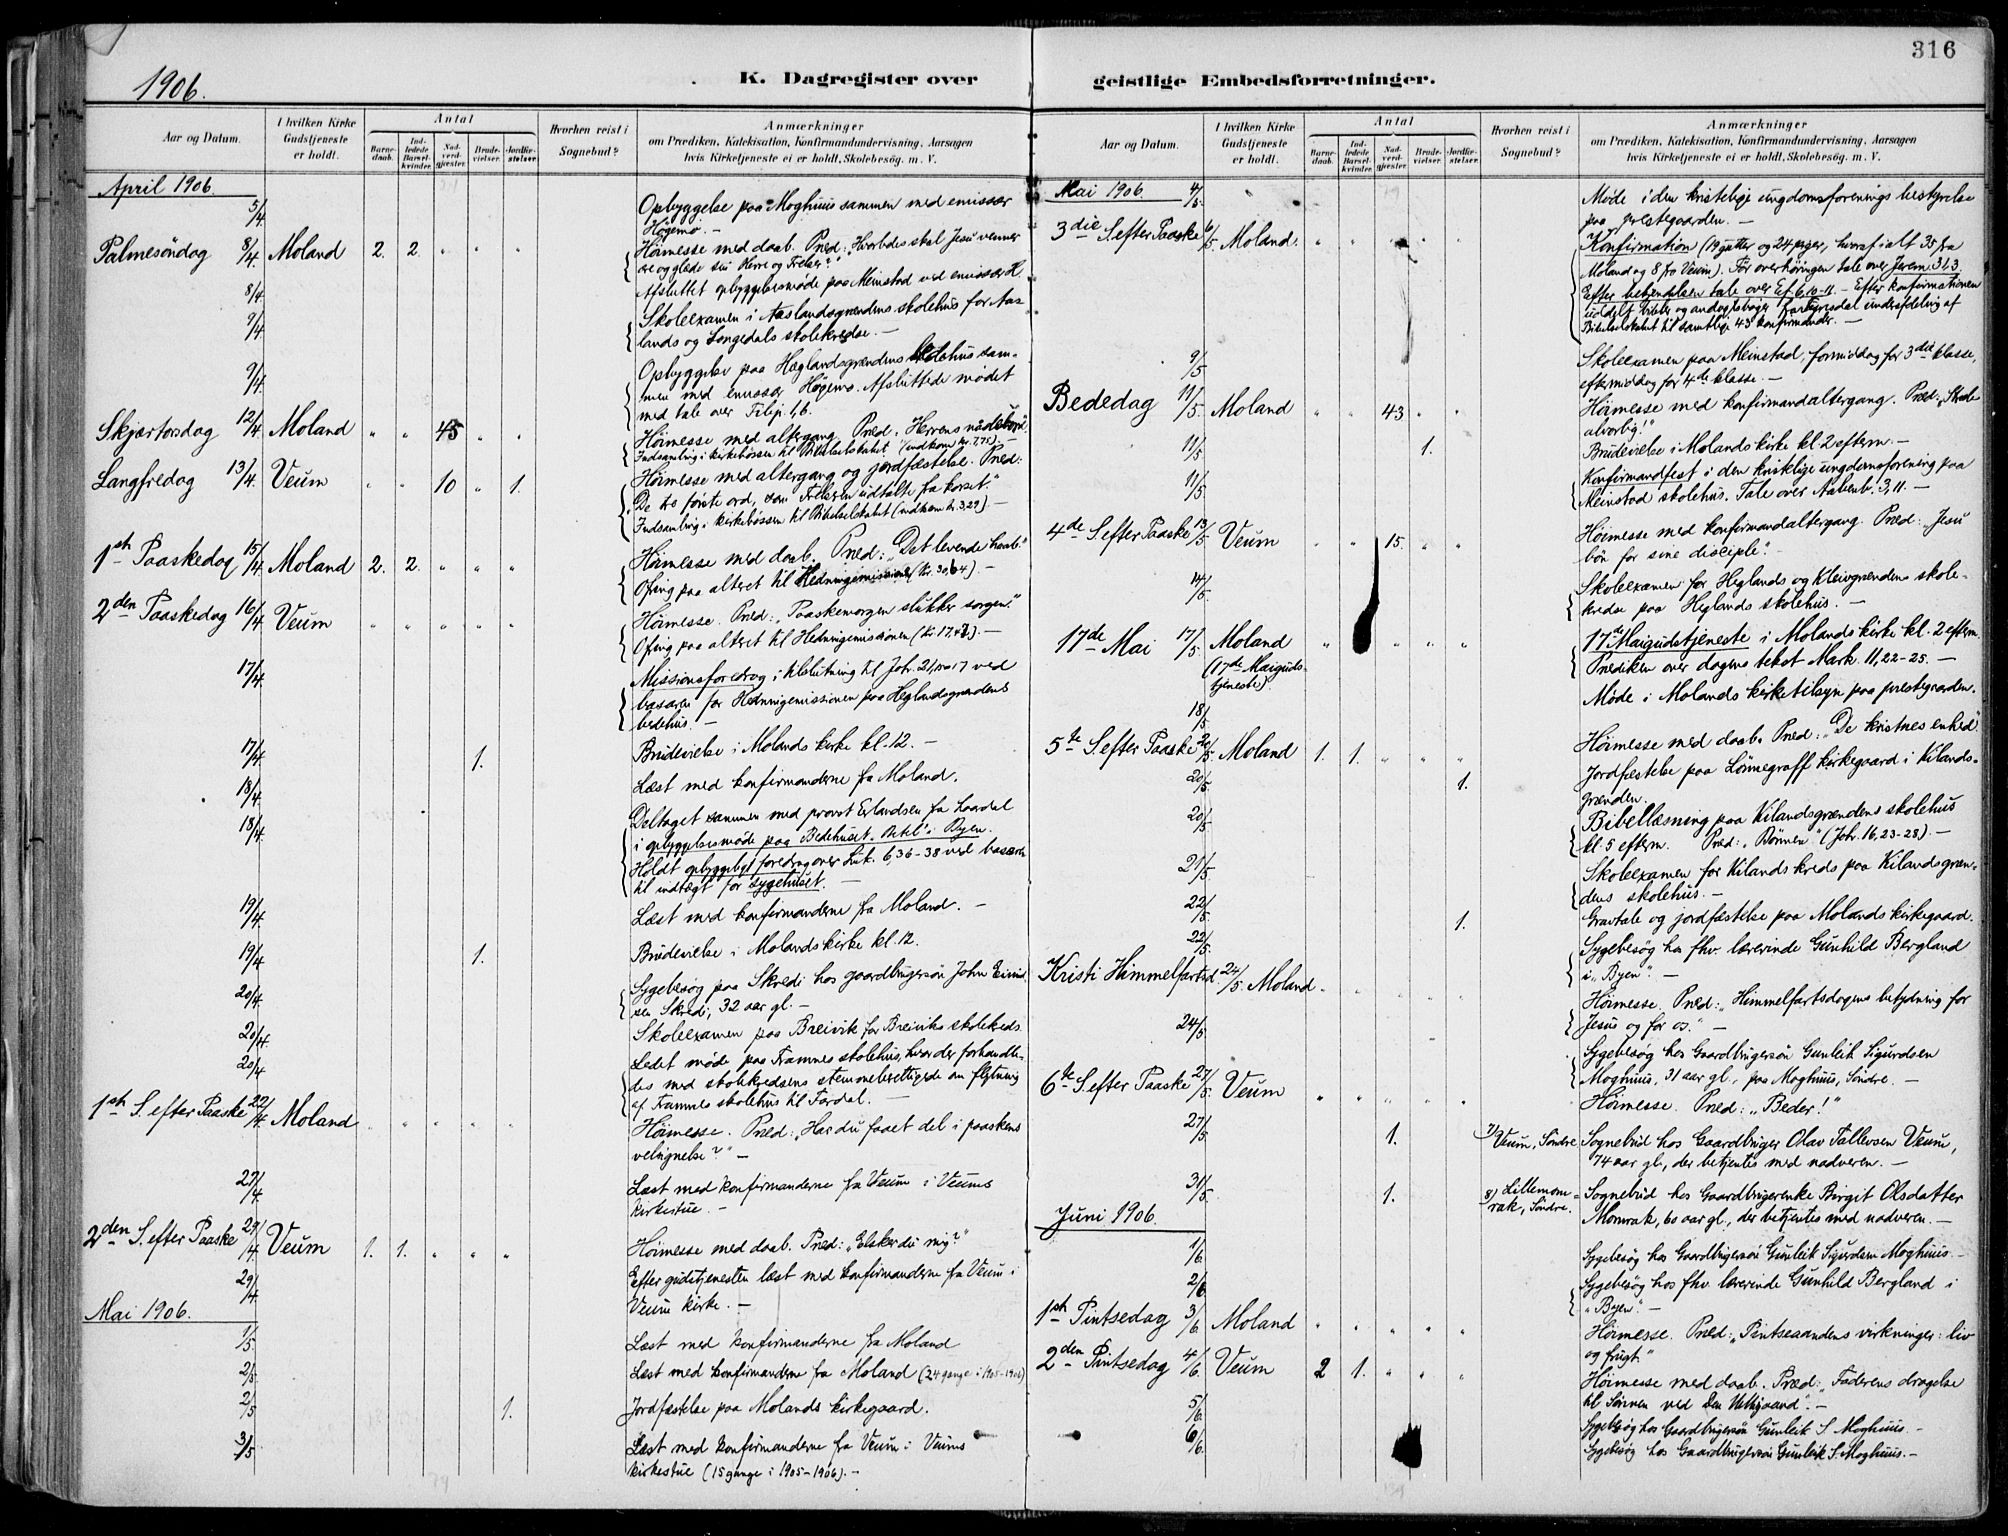 316
1906.
K. Dagregister over geistlige Embedsforretninger.
Aar og Datum.
I hvilken Kirke Gudstjeneste er holdt.
Antal
Barnedaab.
Indledede Barselkvinder.
Nadverdgjester.
Brudevielser.
Jordfæstelser.
Hvorhen reist i Sognebud?
Anmærkninger
om Prædiken, Katekisation, Konfirmandundervisning, Aarsagen
hvis Kirketjeneste ei er holdt, Skolebesøg m. V.
April 1906.
5/4. Opbyggelse paa Moghuus sammen med emissær
Høgemo. –
Palmesöndag 8/4. Moland 2. 2. " " " Höimesse med daab. Præd.: "Hvorledes skal Jesu venner
ære og glæde sin Herre og Frelser?"
8/4. Afsluttet opbyggelsesmöde paa Meinstad ved emissær H.
9/4. Skoleexamen i Aaslandsgrændens skolehus for Aas-
lands og Longedals skolekredse. –
9/4. Opbyggelse paa Heglandsgrændens bedehus sam-
men med emissær Høgemo. Afsluttede mödet
med tale over Filip. 1,6.
Skjærtorsdag 12/4. Moland " " 45 " " Höimesse med altergang. Præd. "Herrens nadebord".
Indsamling i kirkebössen til Bibelselskabet (indkom kr. 7,75). –
Langfredag 13/4. Veum " " 10 " 1. Höimesse med altergang og jordfæstelse. Præd:
"De to förste ord, som Frelseren udtalte fra korset."
Indsamling i kirkebössen til Bibelselskabet (indkom kr. 3,29). –
1ste Paaskedag 15/4. Moland 2. 2. " " " Höimesse med daab. Præd: "Det levende haab."
Ofring paa alteret til Hedningemissionen (kr. 30,64). –
2den Paaskedag 16/4. Veum " " " " " Höimesse. Præd: "Paaskemorgen slukker sorgen."
Ofring paa alteret til Hedningemissionen (kr. 17,47). –
17/4. Missionsforedrag i tilslutning til Joh. 21, ved
basaren for Hedningemissionen paa Heglandsgrændens
bedehus. –
17/4. 1. Brudevielse i Molands kirke kl. 12. –
18/4. Læst med konfirmanderne fra Moland.
18/4. Deltaget sammen med provst Erlandsen fra Laardal
i opbyggelsesmöde paa Bedehuset "Betel" i Byen.
Holdt opbyggeligt foredrag over Luk. 6,36-38 ved basaren
til indtægt for sygehuset. –
19/4. Læst med konfirmanderne fra Moland. –
19/4. 1. Brudevielse i Molands kirke kl. 12.
20/4. Sygebesøg paa Skredi hos gaardbrugersön John Eivind-
sen Skredi, 32 aar gl. –
20/4. Skoleexamen paa Breivik for Breiviks skolekreds.
20/4. Ledet möde paa Framnes skolehus, hvor der forhandle-
des med skolekredsens stemmeberettigede om flytning
af Framnes skolehus til Fardal. –
1ste S. efter Paaske 22/4. Moland " " " " " Höimesse. Præd: "Har du faaet del i paaskens
velsignelse?" –
27/4. Læst med konfirmanderne fra Veum i Veums
kirkestue. –
2den S. efter Paaske 29/4. Veum 1. 1. " " " Höimesse med daab. Præd: "Elsker du mig?"
29/4. Efter gudstjenesten læst med konfirmanderne fra Veum i
Veum kirke. –
Mai 1906.
1/5. Læst med konfirmanderne fra Moland
2/5. Læst med konfirmanderne fra Moland (24 gange i 1905-1906)
2/5. 1. Jordfæstelse paa Molands kirkegaard.
3/5. Læst med konfirmanderne fra Veum i Veums
kirkestue (15 gange i 1905-1906). –
Aar og Datum.
I hvilken Kirke Gudstjeneste er holdt.
Antal
Barnedaab.
Indledede Barselkvinder.
Nadverdgjester.
Brudevielser.
Jordfæstelser.
Hvorhen reist i Sognebud?
Anmærkninger
om Prædiken, Katekisation, Konfirmandundervisning, Aarsagen
hvis Kirketjeneste ei er holdt, Skolebesøg m. V.
Mai 1906. 4/5. Möde i den kristelige ungdomsforenings bestyrelse
paa prestegaarden. –
3die S. efter Paaske 6/5 Moland. " " " " " Konfirmation (19 gutter og 24 piger, hvoraf ialt 35 fra
Moland og 8 fra Veum). För overhöringen tale over Jerem. 31,3.
Efter betjendelsen tale over Ef. 6,10-11. – Efter konfirmationen
uddelt bibler og andagtsböger fra Fyresdal underafdeling af
Bibelselskabet til samtlige 43 konfirmander. –
9/5 Skoleexamen paa Meinstad, formiddag for 3die klasse,
eftermiddag for 4de klasse. –
Bededag 11/5. Moland " " 43 " " Höimesse med konfirmandaltergang. Præd.: "Stride
alvorlig!"
11/5. 1. Brudevielse i Molands kirke kl. 2 efterm. –
11/5. Konfirmandfest i den kristelige ungdomsforening paa
Meinstad skolehus. Tale over Aabenb. 3,11. –
4de S. efter Paaske 13/5. Veum " " 15. " " Höimesse med konfirmandaltergang. Præd: "Jesu
bön for sine disciple".
14/5. Skoleexamen for Heglands og Kleivgrændens skole-
kredse paa Heglands skolehus. –
17de Mai 17/5. Moland " " " " 17de Maigudstjeneste i Molands kirke kl. 2 efterm.
(17de Maiguds-
tjeneste). Prædiken over dagens tekst Mark. 11,22-25. –
18/5. Möde i Molands kirketilsyn paa prestegaarden.
5te S. efter Paaske 20/5. Moland 1. 1. " " " Höimesse med daab. Præd: "De kristnes enhed".
20/5. 1. Jordfæstelse paa Lönnegraff kirkegaard i Kilands-
grænden.
20/5. Bibellæsning paa Kilandsgrændens skolehus
kl. 5 efterm. Præd: "Bönnen" (Joh. 16,23-28). –
21/5. Skoleexamen for Kilands kreds paa Kilandsgræn-
dens skolehus. –
22/5. 1. Gravtale og jordfæstelse paa Molands kirkegaard.
22/5. Sygebesög hos fhv. lærerinde Gunhild Bergland
i "Byen". –
Kristi Himmelfartsd. 24/5. Moland " " " " " Höimesse. Præd: "Himmelfartsdagens betydning for
Jesus og for os." –
24/5. Sygebesög hos Gaardbrugersön Gunleik Sigurdsen
Moghuus, 31 aar gl., paa Moghuus, Söndre. –
6te S. efter Paaske 27/5. Veum " " " " " Höimesse. Præd: "Beder!"
27/5. 1. 7) Veum, Söndre Sognebud hos Gaardbruger Olav Tallevsen Veum,
74 aar gl., der betjentes med nadveren. –
31/5. 1. 8) Lillemom-
rak, Söndre. Sognebud hos Gaardbrugerenke Birgit Olsdatter
Momrak, 60 aar gl., der betjentes med nadveren. –
Juni 1906.
1/6. Sygebesög hos Gaardbrugersön Gunleik Sigurdsen Moghuus. –
2/6. Sygebesög hos fhv. lærerinde Gunhild Bergland i
"Byen". –
1ste Pintsedag 3/6. Moland " " " " " Höimesse. Præd: "Pintseaandens virkninger: liv
og frugt"
2den Pintsedag 4/6. Veum 2 1. " " " Höimesse med daab. Præd: "Faderens dragelse
til Sönnen ved Den Helligaand". –
5/6. Sygebesög hos Gaardbrugersön Gunleik S. Moghuus. –
6/6. Sygebesög hos Gaardbrugersön Gunleik S. Moghuus. –